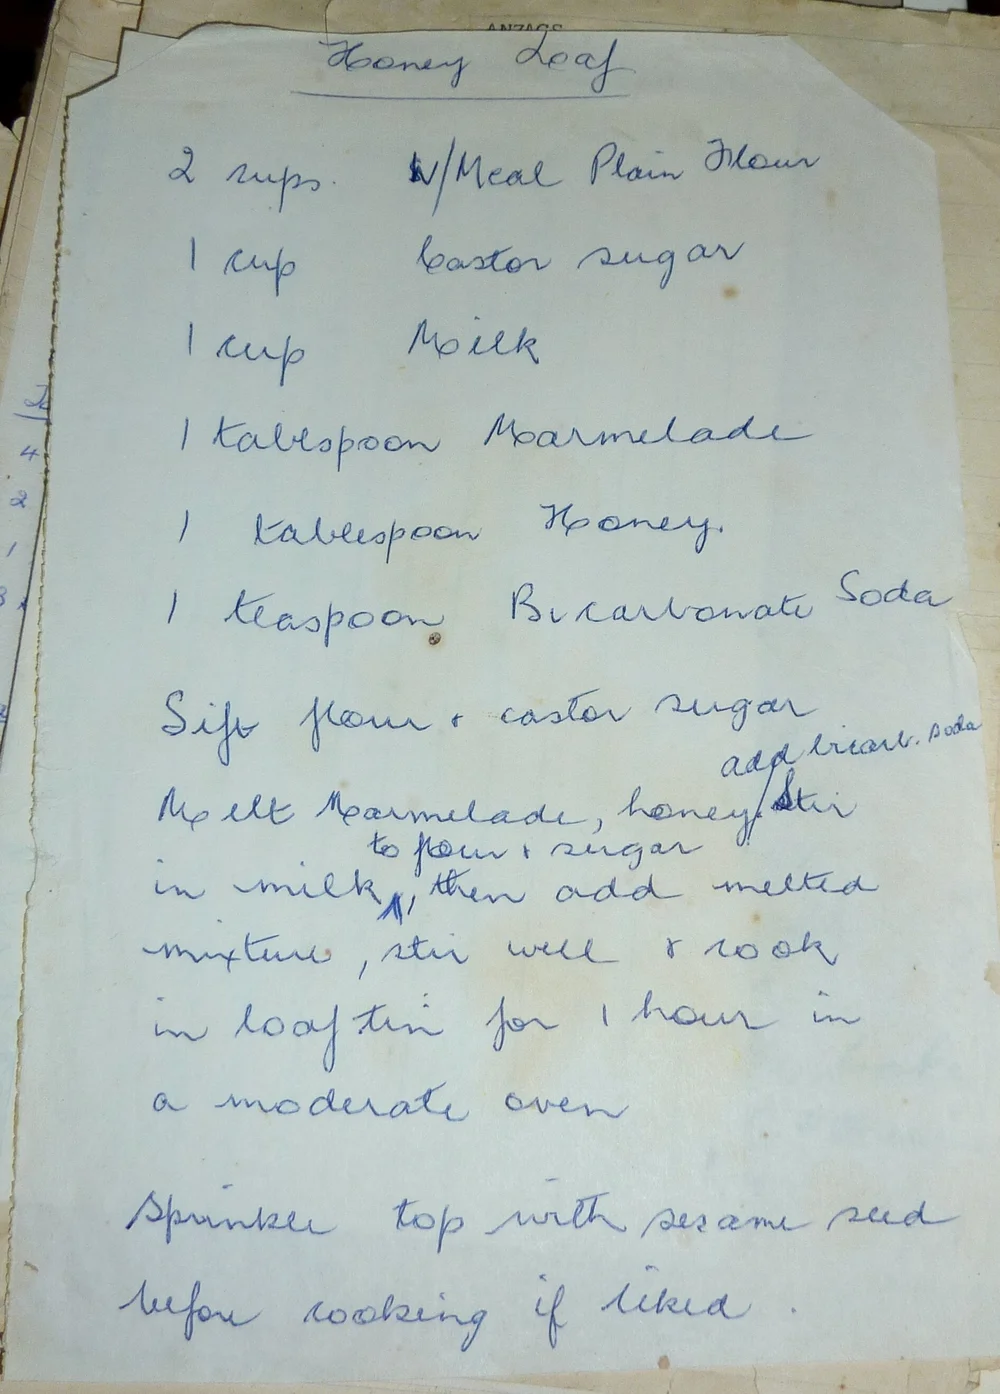 ANZACS
Honey Loaf
2 cups. W/Meal Plain Flour
1 cup Castor sugar
1 cup Milk
1 tablespoon Marmelade
1 tablespoon Honey.
1 teaspoon Bicarbonate Soda
Sift flour & castor sugar
add bicarb. soda
Melt Marmelade, honey/. Stir
to flour & sugar
in milk, then add melted
mixture, stir well & cook
in loaf tin for 1 hour in
a moderate oven
Sprinkle top with sesame seed
before cooking if liked.
4
2
1